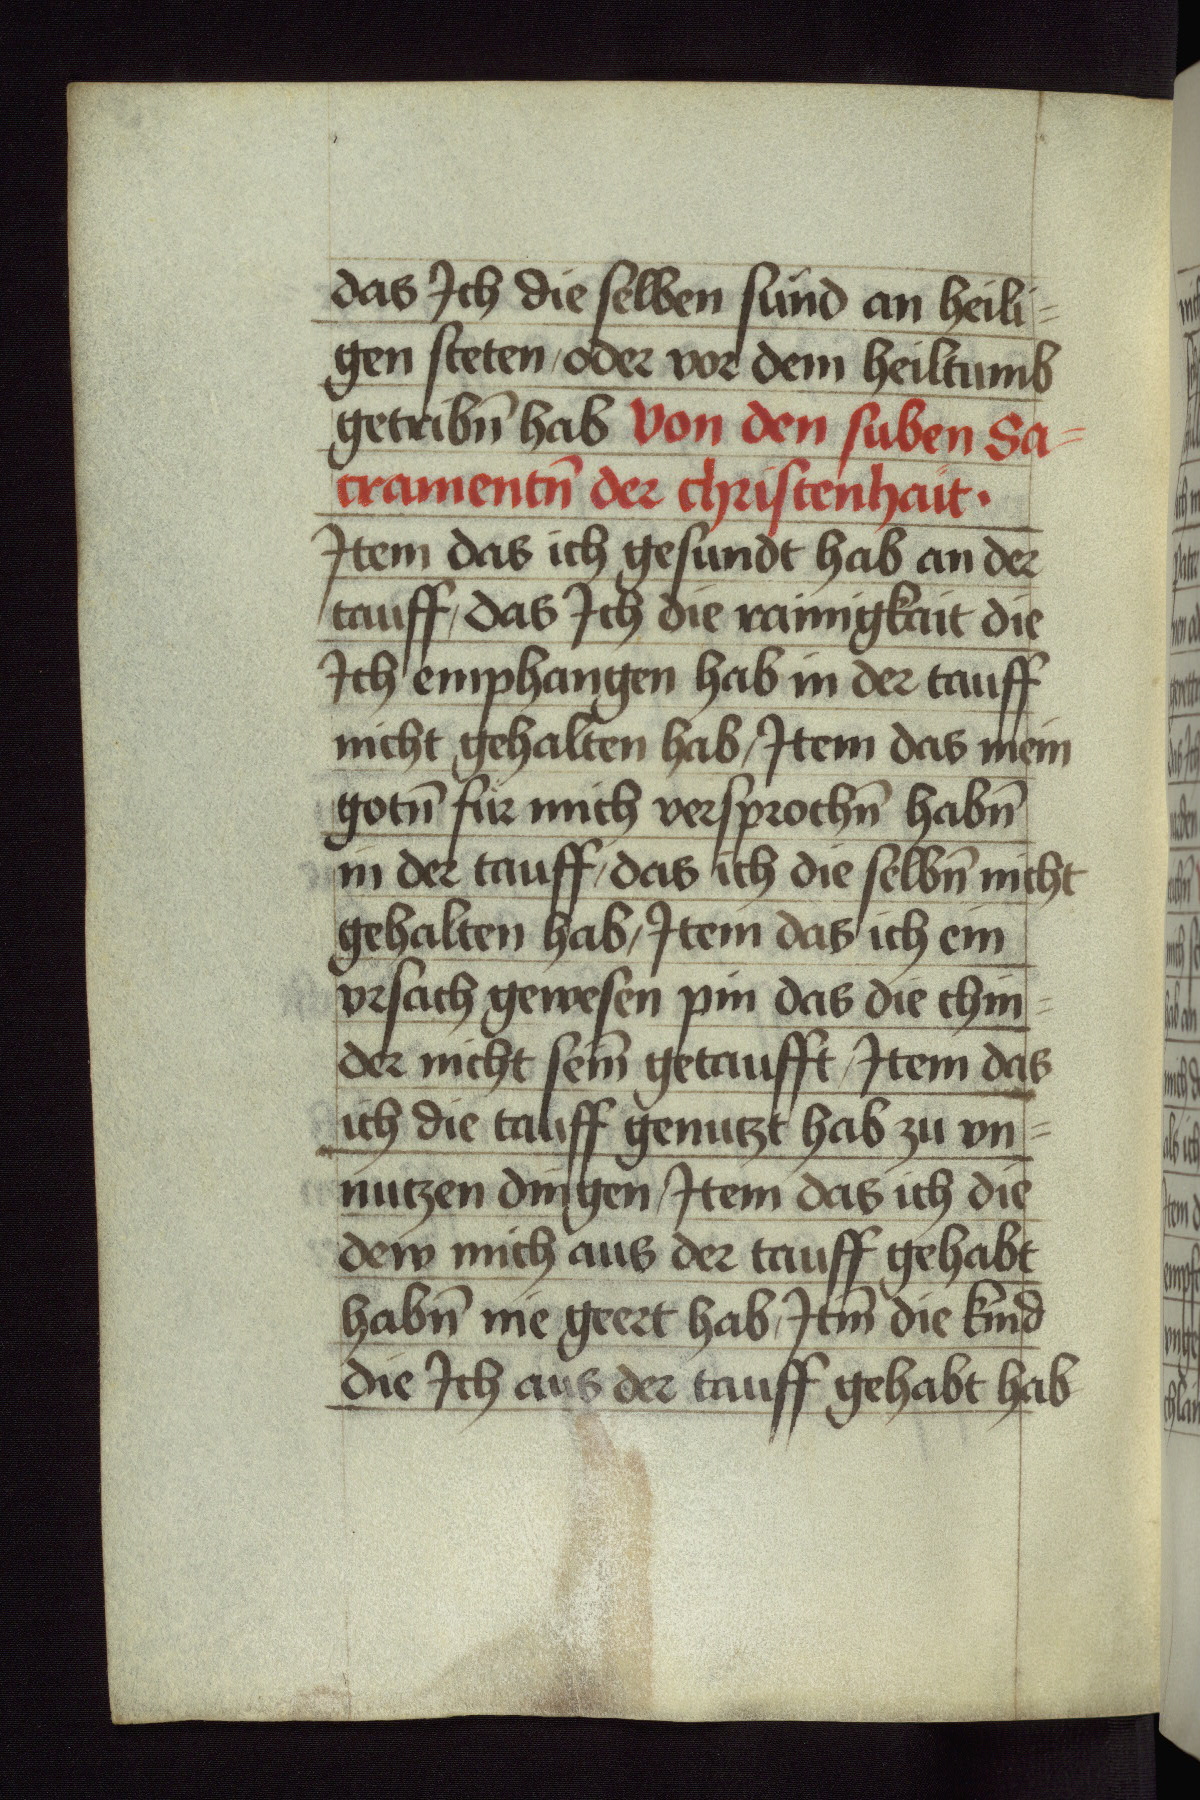 das Jch die selben sund an heili=
gen steten/oder vor dem heiltumb
getribn̄ hab Von den suben Sa=
cramentn̄ der christenhait·
Jtem das ich gesundt hab an der
tauff/das Jch die rainigkait die
Jch emphangen hab in der tauff
nicht gehalten hab/Jtem das mein
gotn̄ für mich versprochn̄ habn̄
in der tauff/das ich die selbn̄ nicht
gehalten hab/Jtem das ich ein
vrsach gewesen pin das die chin=
der nicht sein̄ getaufft/Jtem das
ich die tauff genutzt hab zu vn=
nutzen dingen/Jtem das ich die
dew mich aus der tauff gehabt
habn̄ nie geert hab/Jtm̄ die kind
die Jch aus der tauff gehabt hab